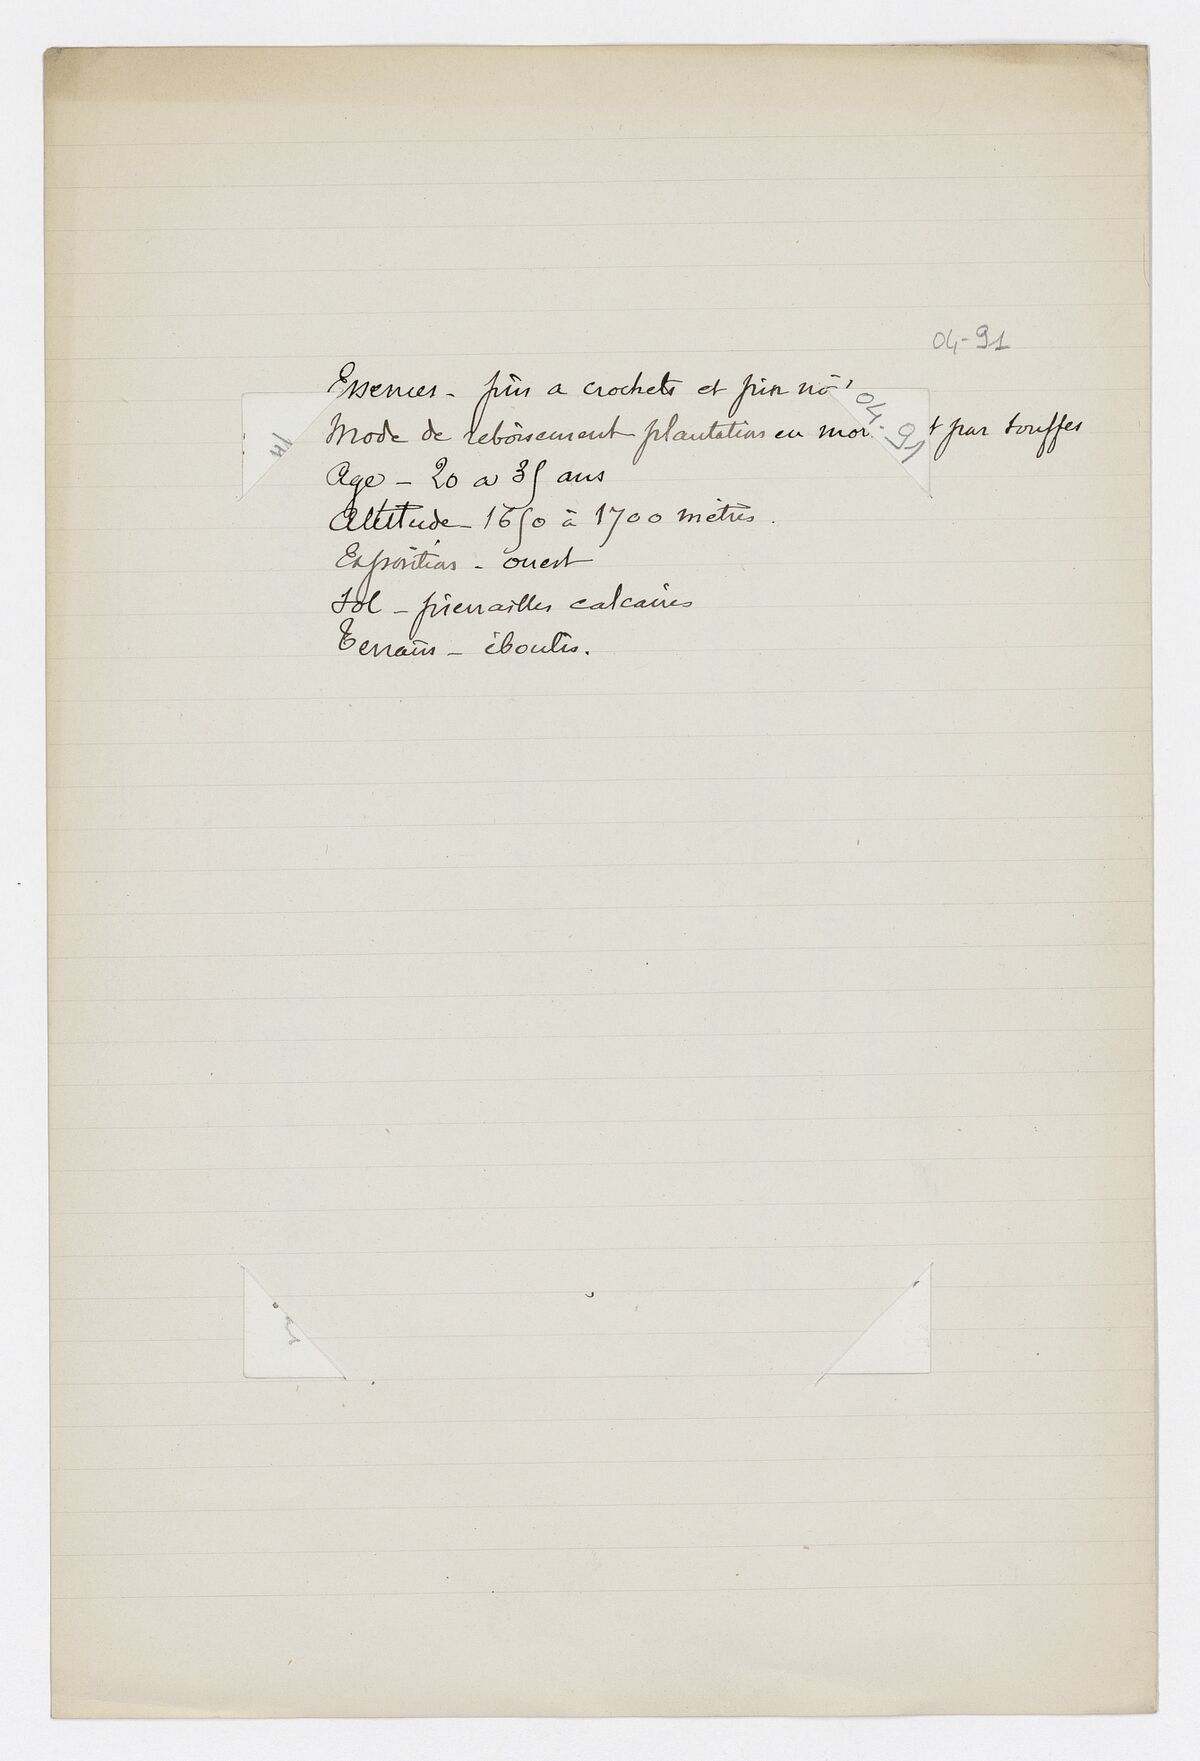 04-91
Essences - pin a crochets et pin noi
Mode de reboisement plantation en mor t par touffes
04-91
Age - 20 a 35 ans
Altitude - 1650 à 1700 mètres.
Exposition - ouest
Sol - pierrailles calcaires
Terrain - éboulis.